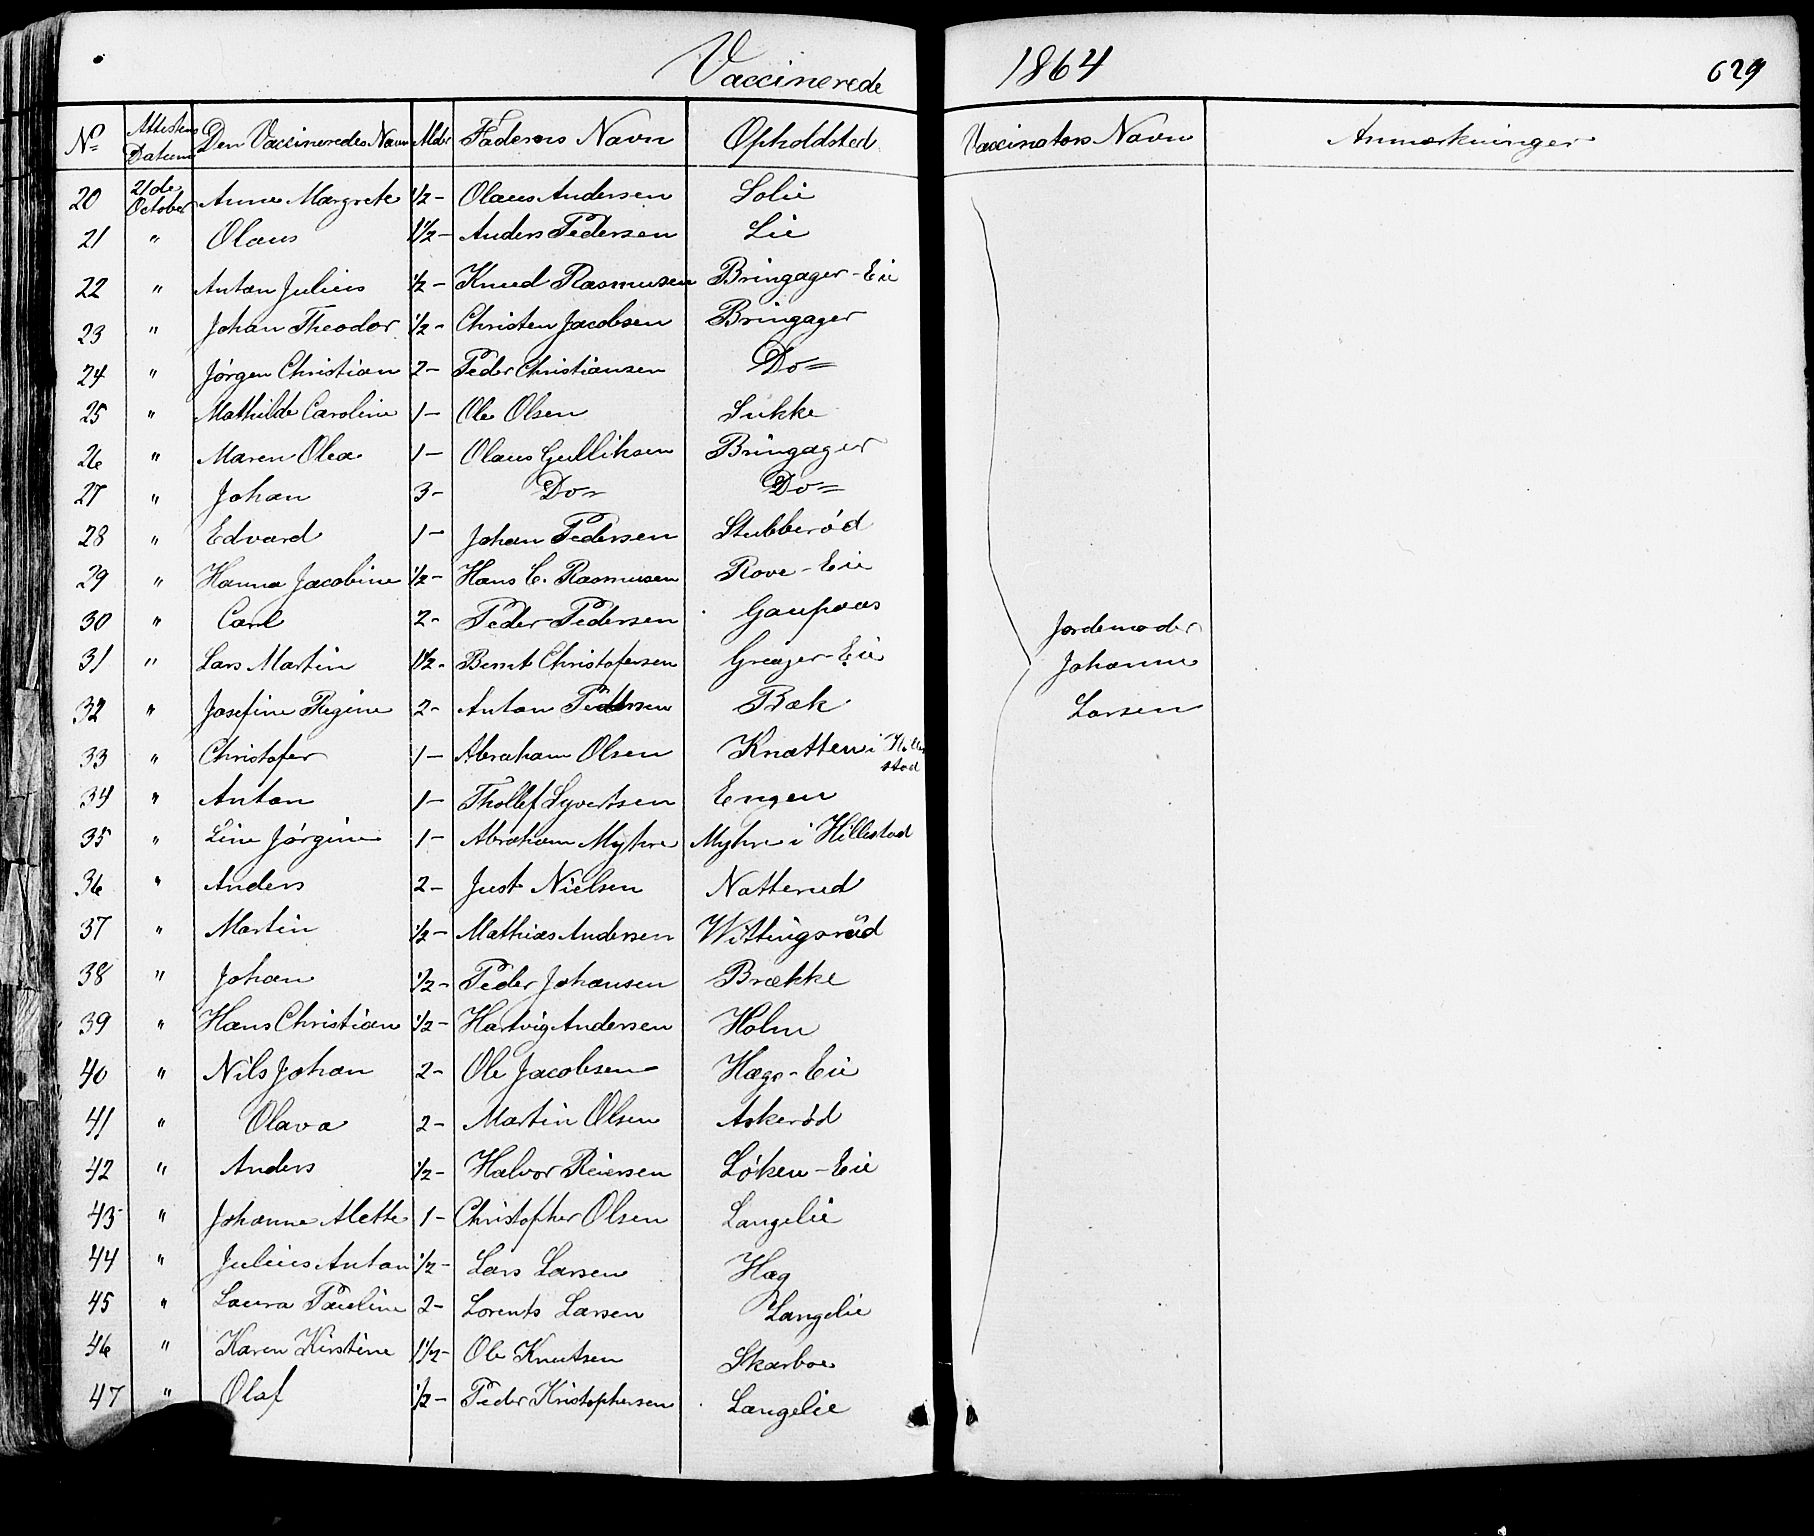 Vaccinerede 1864 629
No Attestens Datum Den Vaccineredes Navn Alder Faderens Navn Opholdsted Vaccinators Navn Anmærkninger
20 21de October Anne Margrete 1/2 - Olaus Andersen Solie
21 " Olaus 1 1/2 - Anders Pedersen Lie
22 " Anton Julius 1/2 - Knud Rasmusen Bringager - Eie
23 " Johan Theodor 1/2 - Christen Jacobsen Bringager
24 " Jørgen Christian 2 - Peder Christiansen Do =
25 " Mathilde Caroline 1 - Ole Olsen Sukke
26 " Maren Olea 1 - Olaus Gulliksen Bringager
27 " Johan 3 - Do = Do =
28 " Edvard 1 - Johan Pedersen Stubberød
29 " Hanna Jacobine 1/2 - Hans C. Rasmusen Rove - Eie
30 " Carl 2 - Peder Pedersen Gaupaas Jordemoder
31 " Lars Martin 1 1/2 - Bernt Christofersen Greager - Eie Johanne
32 " Josefine Regine 2 - Anton Pedersen Bæk Larsen
33 " Christofer 1 - Abraham Olsen Knatten i Hillestad
34 " Anton 1 - Thollef Syvertsen Engen
35 " Line Jørgine 1 - Abraham Myhre Myhre i Hillestad
36 " Anders 2 - Just Nielsen Natterud
37 " Martin 1/2 - Mathias Andersen Wittingsrød
38 " Johan 1/2 - Peder Johansen Brække
39 " Hans Christian 1/2 - Hartvig Andersen Holm
40 " Nils Johan 2 - Ole Jacobsen Hægs - Eie
41 " Olava 2 - Martin Olsen Askerød
42 " Anders 1/2 - Halvor Reiersen Løken - Eie
43 " Johanne Alette 1 - Christopher Olsen Langelie
44 " Julius Anton 1/2 - Lars Larsen Hæg
45 " Laura Pauline 2 - Lorents Larsen Langelie
46 " Karen Kirstine 1 1/2 - Ole Knutsen Skarboe
47 " Olaf 1/2 - Peder Kristophersen Langelie